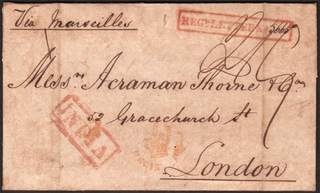 Via Marseilles
Messrs Acraman Thorne & Co
52 Gracechurch St
London
INDIA